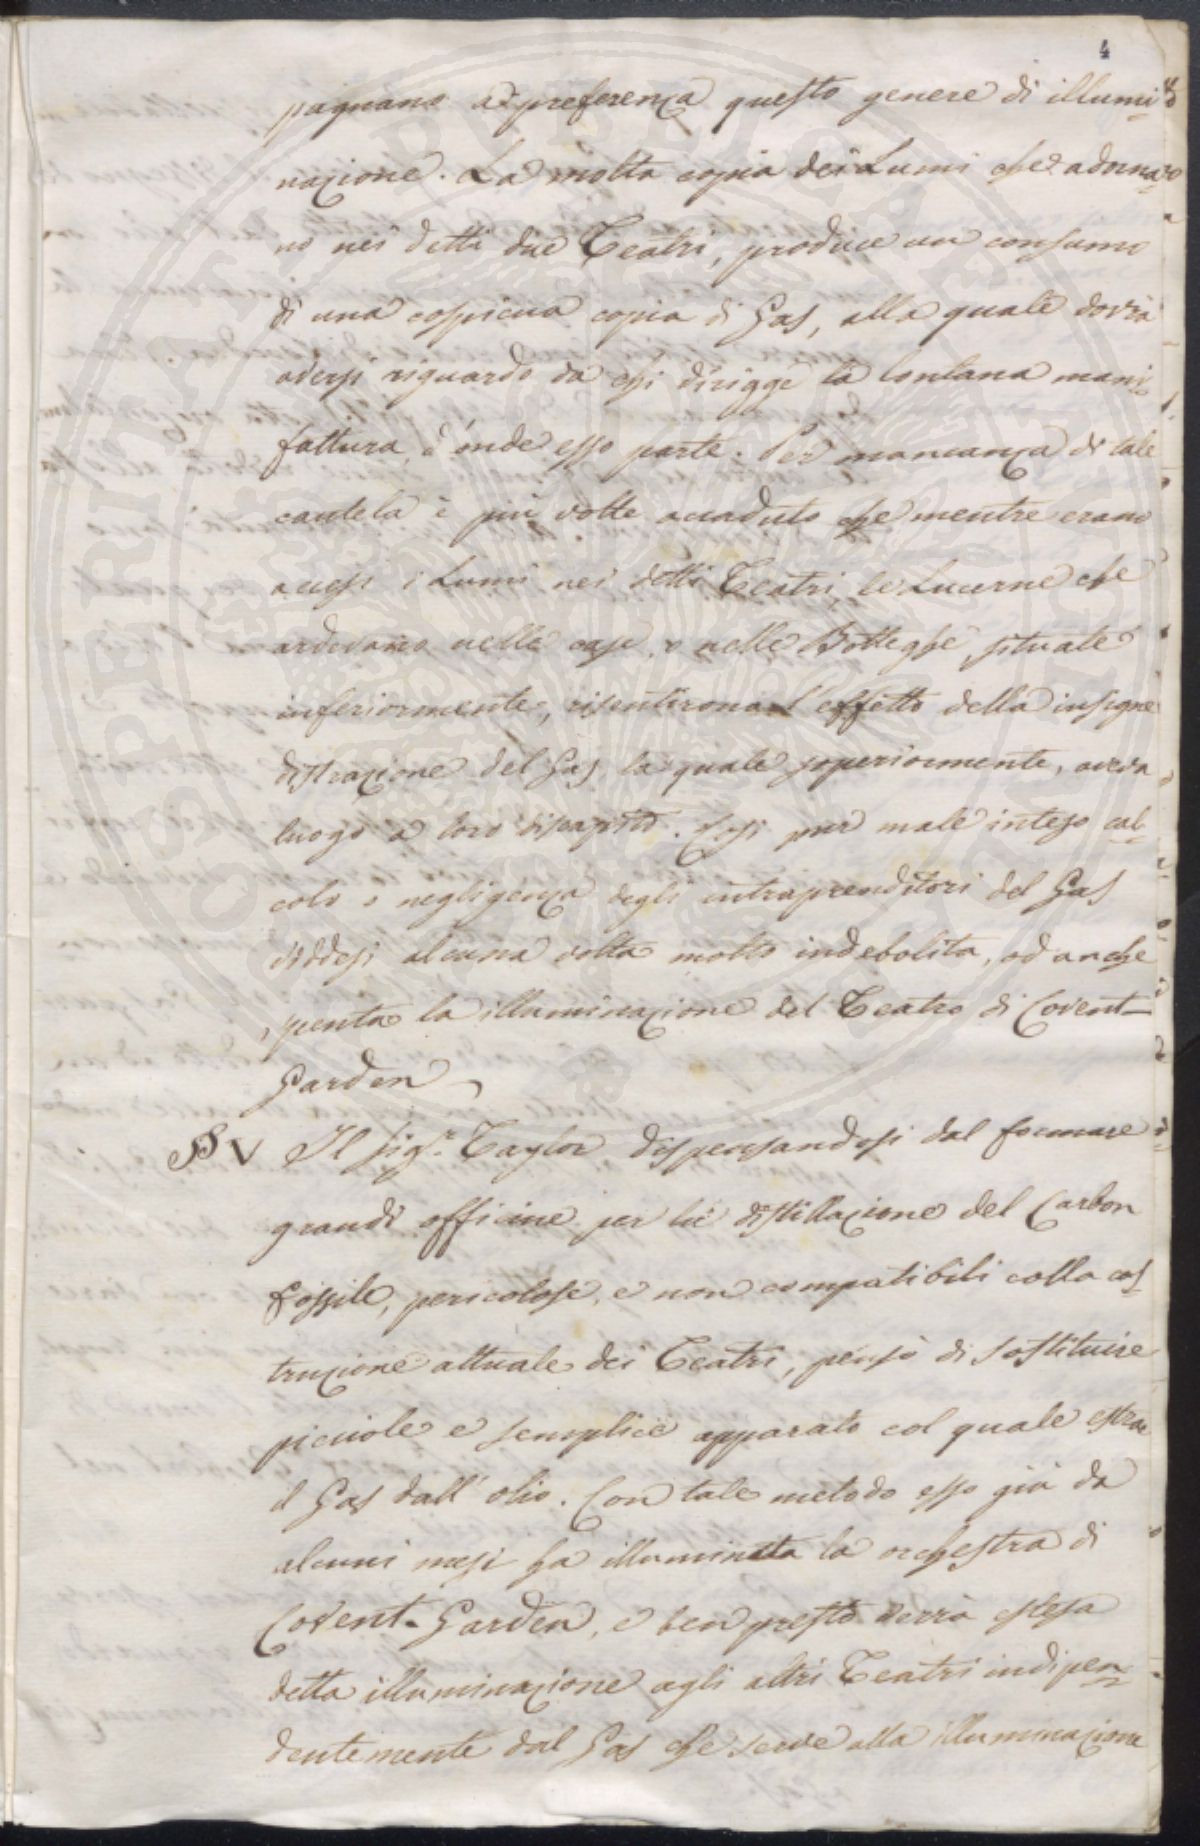 4
pagnano a preferenza questo genere di illumi
nazione. La molta copia dei Lumi che adorna
no nei detti due Teatri, produce un consumo
di una cospicua copia di Gas, alla quale dovria
aversi riguardo da chi dirigge la lontana mani
fattura, d'onde esso parte. Per mancanza di tale
cautela è più volte accaduto che mentre erano
accesi i Lumi nei detti Teatri, le Lucerne che
ardevano nelle case, o nelle Botteghe, situate
inferiormente, risentirono l'effetto della insigne
distrazione del Gas la quale superiormente, aveva
luogo a loro discapito. Così pur male inteso cal
colo o negligenza degli intraprenditori del Gas
viddesi alcuna volta molto indebolita, ed anche
spenta la illuminazione del Teatro di Covent-
Garden
§ V Il Sigr. Taylor dispensandosi dal formare
grandi officine per la distillazione del Carbon
fossile, pericolose, e non compatibili colla cos
truzione attuale dei Teatri, pensò di sostituire
picciole e semplice apparato col quale estrae
il Gas dall'olio. Con tale metodo esso già da
alcuni mesi ha illuminata la orchestra di
Covent-Garden, e ben presto verrà estesa
detta illuminazione agli altri Teatri indipen
dentemente dal Gas che serve alla illuminazione